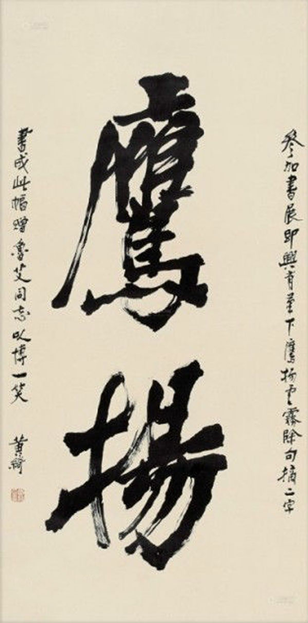 參加書展即興有筆下鷹揚雲霧除句摘二字
鷹揚
書成此幅贈魯艾同志以博一笑
黃綺